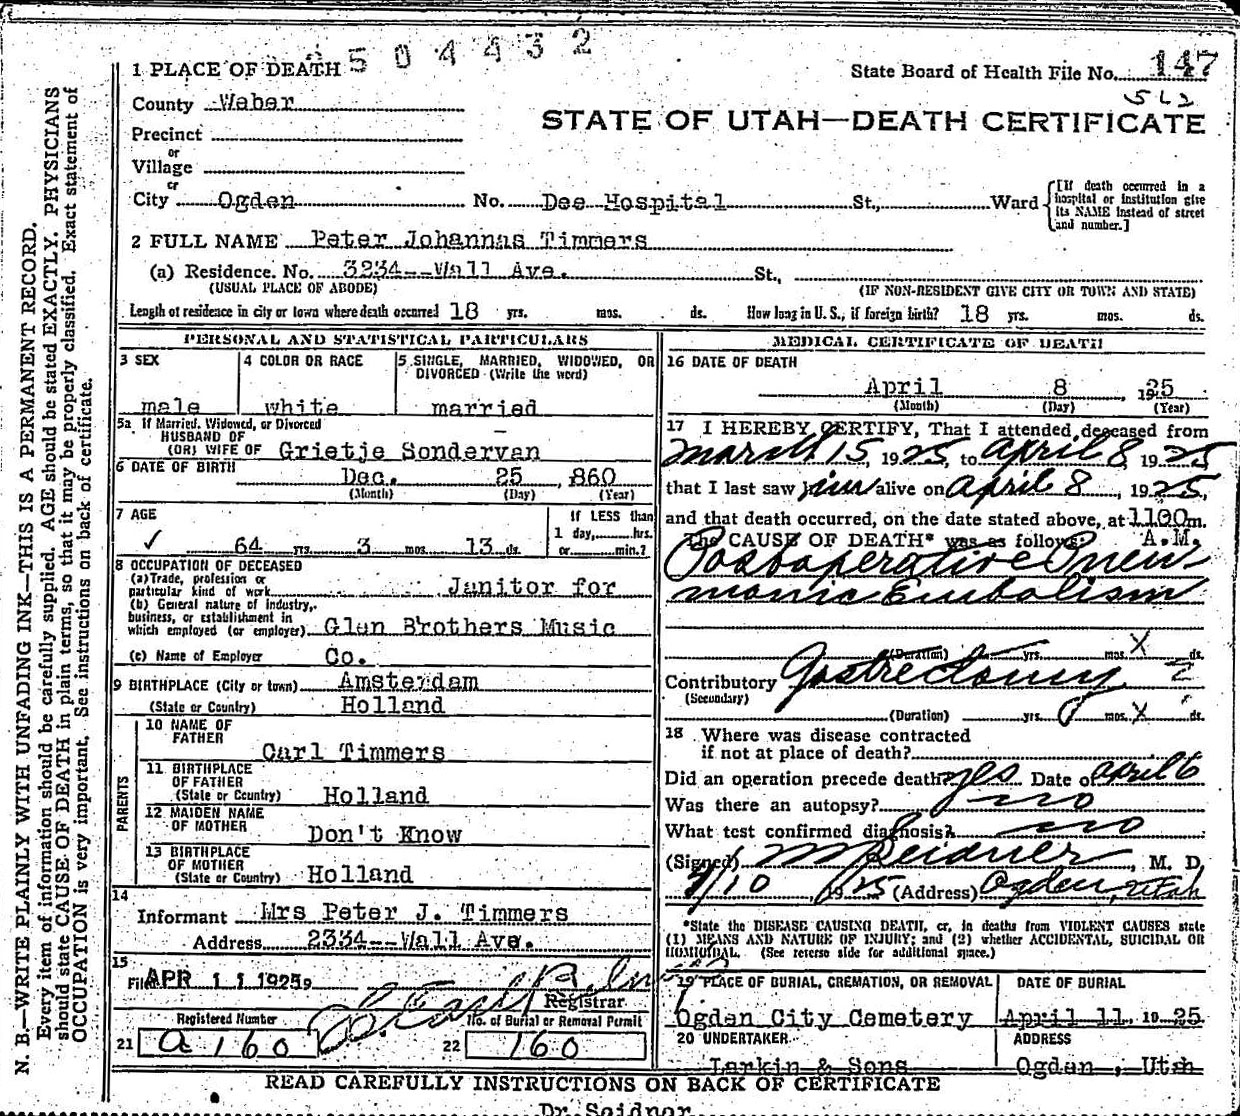 504432
1 PLACE OF DEATH
State Board of Health File No. 147
County Weber
STATE OF UTAH—DEATH CERTIFICATE
Precinct
or
Village
or
City Ogden No. Dee Hospital St., Ward
[If death occurred in a
hospital or institution give
its NAME instead of street
and number.]
2 FULL NAME Peter Johannas Timmers
(a) Residence. No. 3234--Wall Ave. St.,
(USUAL PLACE OF ABODE) (IF NON-RESIDENT GIVE CITY OR TOWN AND STATE)
Length of residence in city or town where death occurred 18 yrs. mos. ds. How long in U. S., if foreign birth? 18 yrs. mos. ds.
PERSONAL AND STATISTICAL PARTICULARS
3 SEX
male
4 COLOR OR RACE
white
5 SINGLE, MARRIED, WIDOWED, OR
DIVORCED (Write the word)
married
5a If Married, Widowed, or Divorced
HUSBAND OF
(OR) WIFE OF Grietje Sondervan
6 DATE OF BIRTH
Dec. 25, 860
(Month) (Day) (Year)
7 AGE
✓ 64 yrs. 3 mos. 13 ds.
If LESS than
1 day, hrs.
or min.?
8 OCCUPATION OF DECEASED
(a) Trade, profession or
particular kind of work Janitor for
(b) General nature of industry,
business, or establishment in
which employed (or employer) Glen Brothers Music
(c) Name of Employer Co.
9 BIRTHPLACE (City or town) Amsterdam
(State or Country) Holland
PARENTS
10 NAME OF
FATHER
Carl Timmers
11 BIRTHPLACE
OF FATHER
(State or Country) Holland
12 MAIDEN NAME
OF MOTHER Don't Know
13 BIRTHPLACE
OF MOTHER
(State or Country) Holland
14
Informant Mrs Peter J. Timmers
Address 2334--Wall Ave.
15
Filed APR 11 1925 9
Registrar
Registered Number
21 a 160
No. of Burial or Removal Permit
22 160
MEDICAL CERTIFICATE OF DEATH
16 DATE OF DEATH
April 8 1925
(Month) (Day) (Year)
17 I HEREBY CERTIFY, That I attended deceased from
March 15, 1925, to April 8, 1925
that I last saw him alive on April 8, 1925,
and that death occurred, on the date stated above, at 1100 m.
A.M.
The CAUSE OF DEATH* was as follows:
Postoperative Pneu-
monia Embolism
(Duration) yrs. mos. X ds.
Contributory Gastrectomy
(Secondary)
(Duration) yrs. mos. X ds.
18 Where was disease contracted
if not at place of death?
Did an operation precede death? yes Date of April 6
Was there an autopsy? no
What test confirmed diagnosis? no
(Signed) Seidner, M. D.
1925 (Address) Ogden, Utah
*State the DISEASE CAUSING DEATH, or, in deaths from VIOLENT CAUSES state
(1) MEANS AND NATURE OF INJURY; and (2) whether ACCIDENTAL, SUICIDAL OR
HOMICIDAL. (See reverse side for additional space.)
19 PLACE OF BURIAL, CREMATION, OR REMOVAL
Ogden City Cemetery
DATE OF BURIAL
April 11, 1925
20 UNDERTAKER
Larkin & Sons
ADDRESS
Ogden, Utah
READ CAREFULLY INSTRUCTIONS ON BACK OF CERTIFICATE
Dr Seidner
N. B.—WRITE PLAINLY WITH UNFADING INK—THIS IS A PERMANENT RECORD.
Every item of information should be carefully supplied. AGE should be stated EXACTLY. PHYSICIANS
should state CAUSE OF DEATH in plain terms, so that it may be properly classified. Exact statement of
OCCUPATION is very important. See instructions on back of certificate.